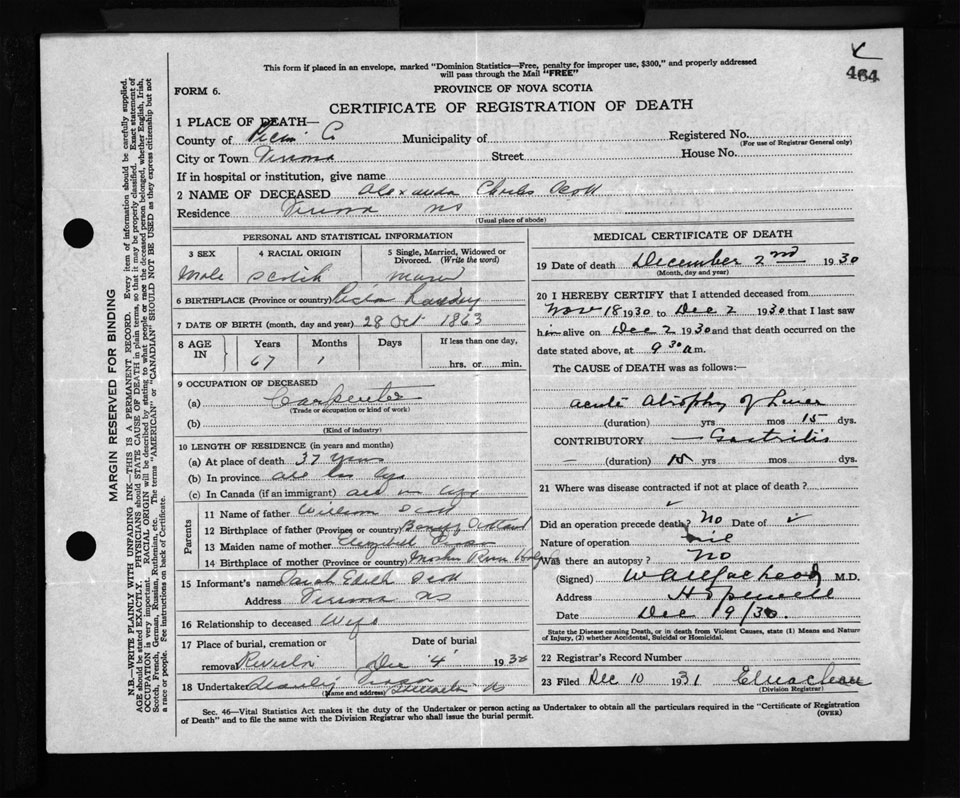 464
This form if placed in an envelope, marked "Dominion Statistics—Free, penalty for improper use, $300," and properly addressed
will pass through the Mail "FREE"
FORM 6.
PROVINCE OF NOVA SCOTIA
CERTIFICATE OF REGISTRATION OF DEATH
MARGIN RESERVED FOR BINDING
N.B.—WRITE PLAINLY WITH UNFADING INK—THIS IS A PERMANENT RECORD. Every item of information should be carefully supplied.
AGE should be stated EXACTLY. PHYSICIANS should STATE CAUSE OF DEATH in plain terms, so that it may be properly classified. Exact statement of
OCCUPATION is very important. RACIAL ORIGIN will be described by stating to what people or race the deceased person belonged, whether English, Irish,
Scotch, French, German, Russian, Ruthenian, etc. The terms "AMERICAN" or "CANADIAN" SHOULD NOT BE USED as they express citizenship but not
a race or people. See instructions on back of Certificate.
1 PLACE OF DEATH—
County of Pictou Co Municipality of Registered No.
(For use of Registrar General only)
City or Town Street House No.
If in hospital or institution, give name
2 NAME OF DECEASED Alexander Charles Scott
Residence NS
(Usual place of abode)
PERSONAL AND STATISTICAL INFORMATION
3 SEX 4 RACIAL ORIGIN 5 Single, Married, Widowed or Divorced. (Write the word)
Male Scotch
6 BIRTHPLACE (Province or country)
7 DATE OF BIRTH (month, day and year) 28 Oct 1863
8 AGE IN Years Months Days If less than one day,
67 1 hrs. or min.
9 OCCUPATION OF DECEASED
(a) Carpenter
(Trade or occupation or kind of work)
(b)
(Kind of industry)
10 LENGTH OF RESIDENCE (in years and months)
(a) At place of death 37 years
(b) In province all his life
(c) In Canada (if an immigrant) all his life
Parents
11 Name of father William Scott
12 Birthplace of father (Province or country) Scotland
13 Maiden name of mother Elizabeth
14 Birthplace of mother (Province or country) River
15 Informant's name Sarah Edith Scott
Address NS
16 Relationship to deceased Wife
17 Place of burial, cremation or removal Date of burial
Dec 4 1930
18 Undertaker
(Name and address)
MEDICAL CERTIFICATE OF DEATH
19 Date of death December 2nd 1930
(Month, day and year)
20 I HEREBY CERTIFY that I attended deceased from
Nov 18 1930 to Dec 2 1930 that I last saw
him alive on Dec 2 1930 and that death occurred on the
date stated above, at 9 30 a m.
The CAUSE of DEATH was as follows:—
Acute Atrophy of Liver
(duration) yrs mos 15 dys.
CONTRIBUTORY — Gastritis
(duration) 15 yrs mos dys.
21 Where was disease contracted if not at place of death?
Did an operation precede death? No Date of
Nature of operation
Was there an autopsy? No
(Signed) M.D.
Address Hopewell
Date Dec 9/30
State the Disease causing Death, or in death from Violent Causes, state (1) Means and Nature
of Injury, (2) whether Accidental, Suicidal or Homicidal.
22 Registrar's Record Number
23 Filed Dec 10 1931
(Division Registrar)
Sec. 46—Vital Statistics Act makes it the duty of the Undertaker or person acting as Undertaker to obtain all the particulars required in the "Certificate of Registration
of Death" and to file the same with the Division Registrar who shall issue the burial permit.
(OVER)